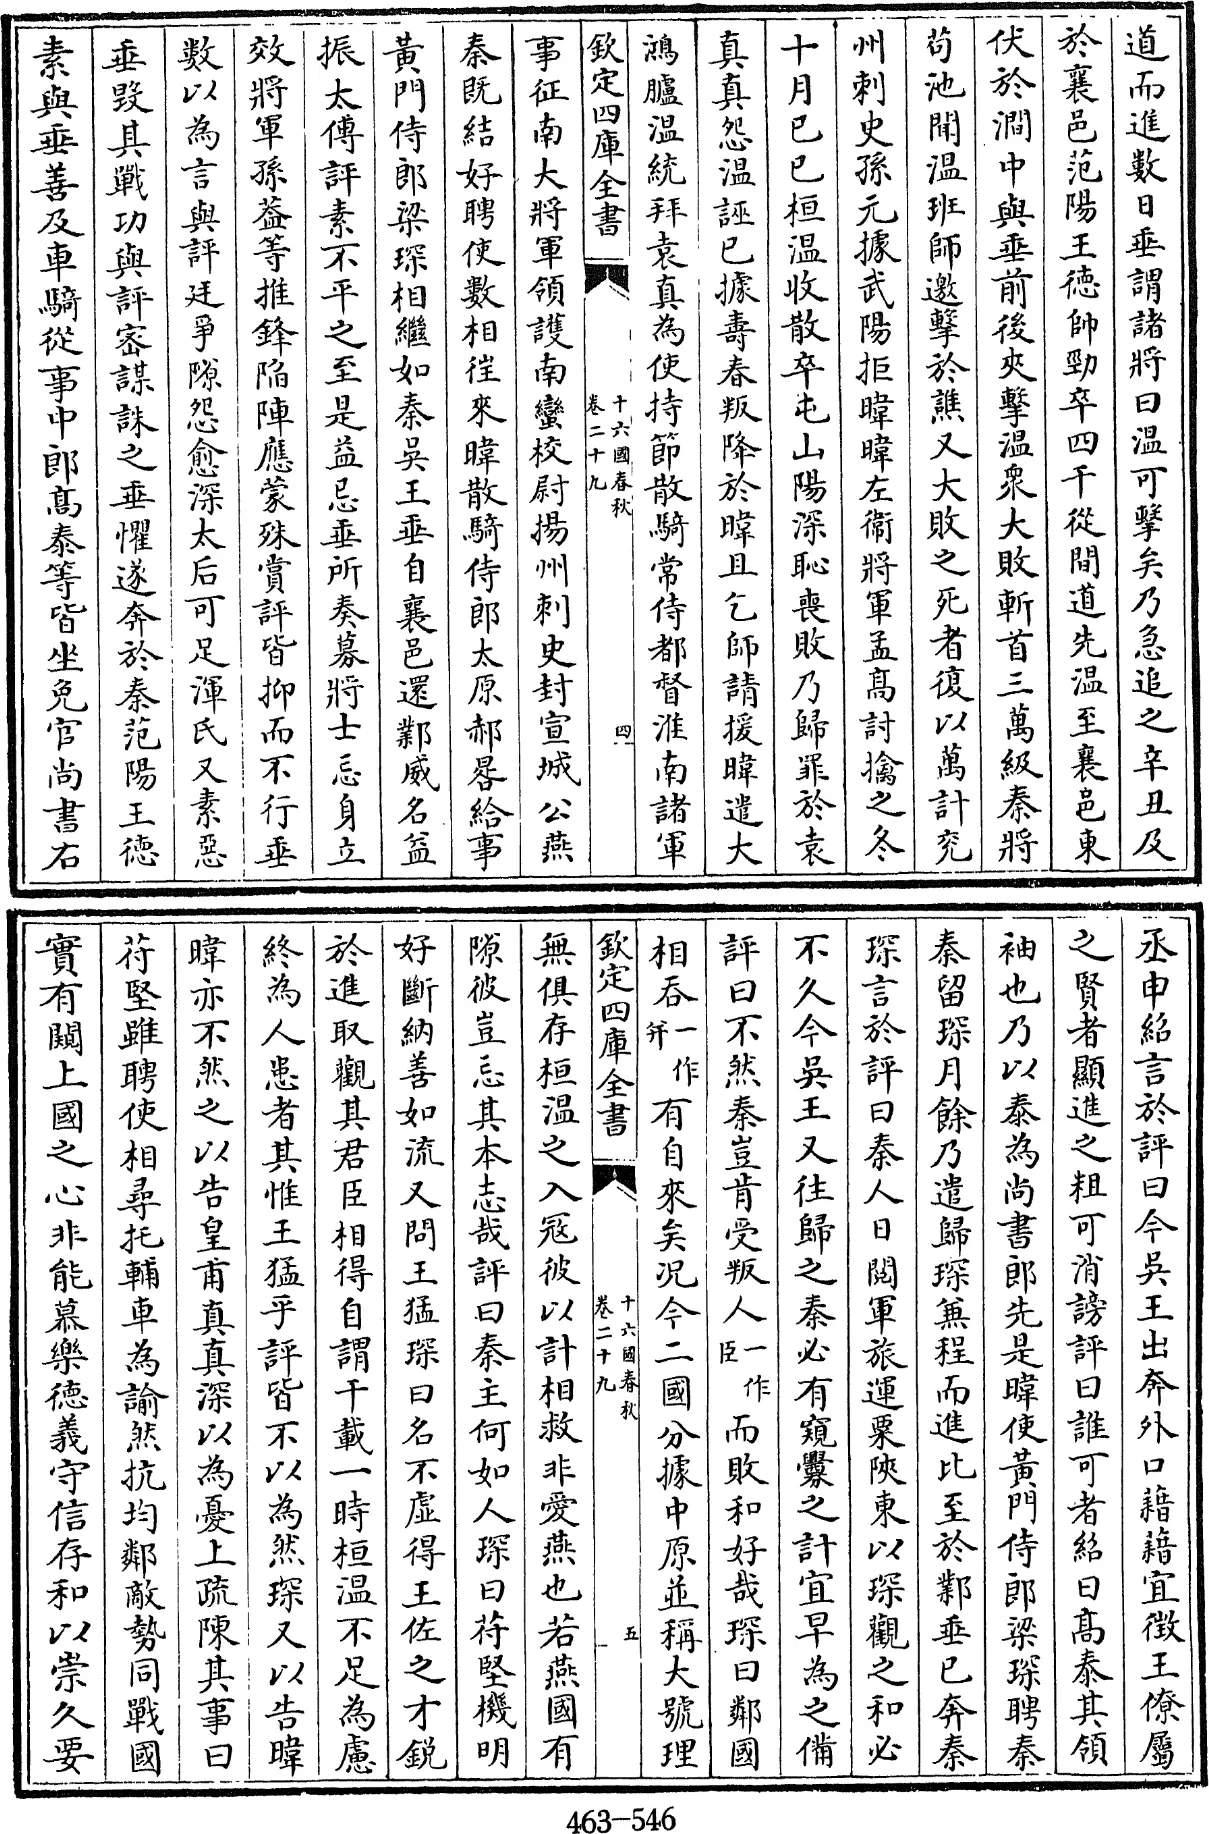 道而進數日垂謂諸將曰溫可擊矣乃急追之辛丑及
於襄邑范陽王德帥勁卒四千從間道先溫至襄邑東
伏於澗中與垂前後夾擊溫衆大敗斬首三萬級秦將
茍池聞溫班師邀擊於譙又大敗之死者復以萬計兖
州刺史孫元據武陽拒暐暐左衛將軍孟髙討擒之冬
十月已巳桓溫收散卒屯山陽深恥喪敗乃歸罪於袁
真真怨溫誣已據壽春叛降於暐且乞師請援暐遣大
鴻臚溫統拜袁真為使持節散騎常侍都督淮南諸軍
欽定四庫全書
十六國春秋
卷二十九
四
事征南大將軍領護南蠻校尉揚州刺史封宣城公燕
秦既結好聘使數相徃來暐散騎侍郎太原郝晷給事
黃門侍郎梁琛相繼如秦吳王垂自襄邑還鄴威名益
振太傅評素不平之至是益忌垂所奏募將士忘身立
效將軍孫葢等推鋒陷陣應蒙殊賞評皆抑而不行垂
數以為言與評廷爭隙怨愈深太后可足渾氏又素惡
垂毀其戰功與評宻謀誅之垂懼遂奔於秦范陽王德
素與垂善及車騎從事中郎髙泰等皆坐免官尚書右
丞申紹言於評曰今吳王出奔外口藉藉宜徴王僚屬
之賢者顯進之粗可消謗評曰誰可者紹曰髙泰其領
袖也乃以泰為尚書郎先是暐使黃門侍郎梁琛聘秦
秦留琛月餘乃遣歸琛兼程而進比至於鄴垂已奔秦
琛言於評曰秦人日閱軍旅運粟陜東以琛觀之和必
不久今吳王又往歸之秦必有窺釁之計宜早為之備
評曰不然秦豈肯受叛人一作臣而敗和好哉琛曰鄰國
相吞一作并有自來矣况今二國分據中原並稱大號理
欽定四庫全書
十六國春秋
卷二十九
五
無俱存桓溫之入冦彼以計相救非愛燕也若燕國有
隙彼豈忘其本志哉評曰秦主何如人琛曰苻堅機明
好斷納善如流又問王猛琛曰名不虛得王佐之才銳
於進取觀其君臣相得自謂千載一時桓溫不足為慮
終為人患者其惟王猛乎評皆不以為然琛又以告暐
暐亦不然之以告皇甫真真深以為憂上疏陳其事曰
苻堅雖聘使相尋托輔車為諭然抗均鄰敵勢同戰國
實有闚上國之心非能慕樂德義守信存和以崇久要
463-546